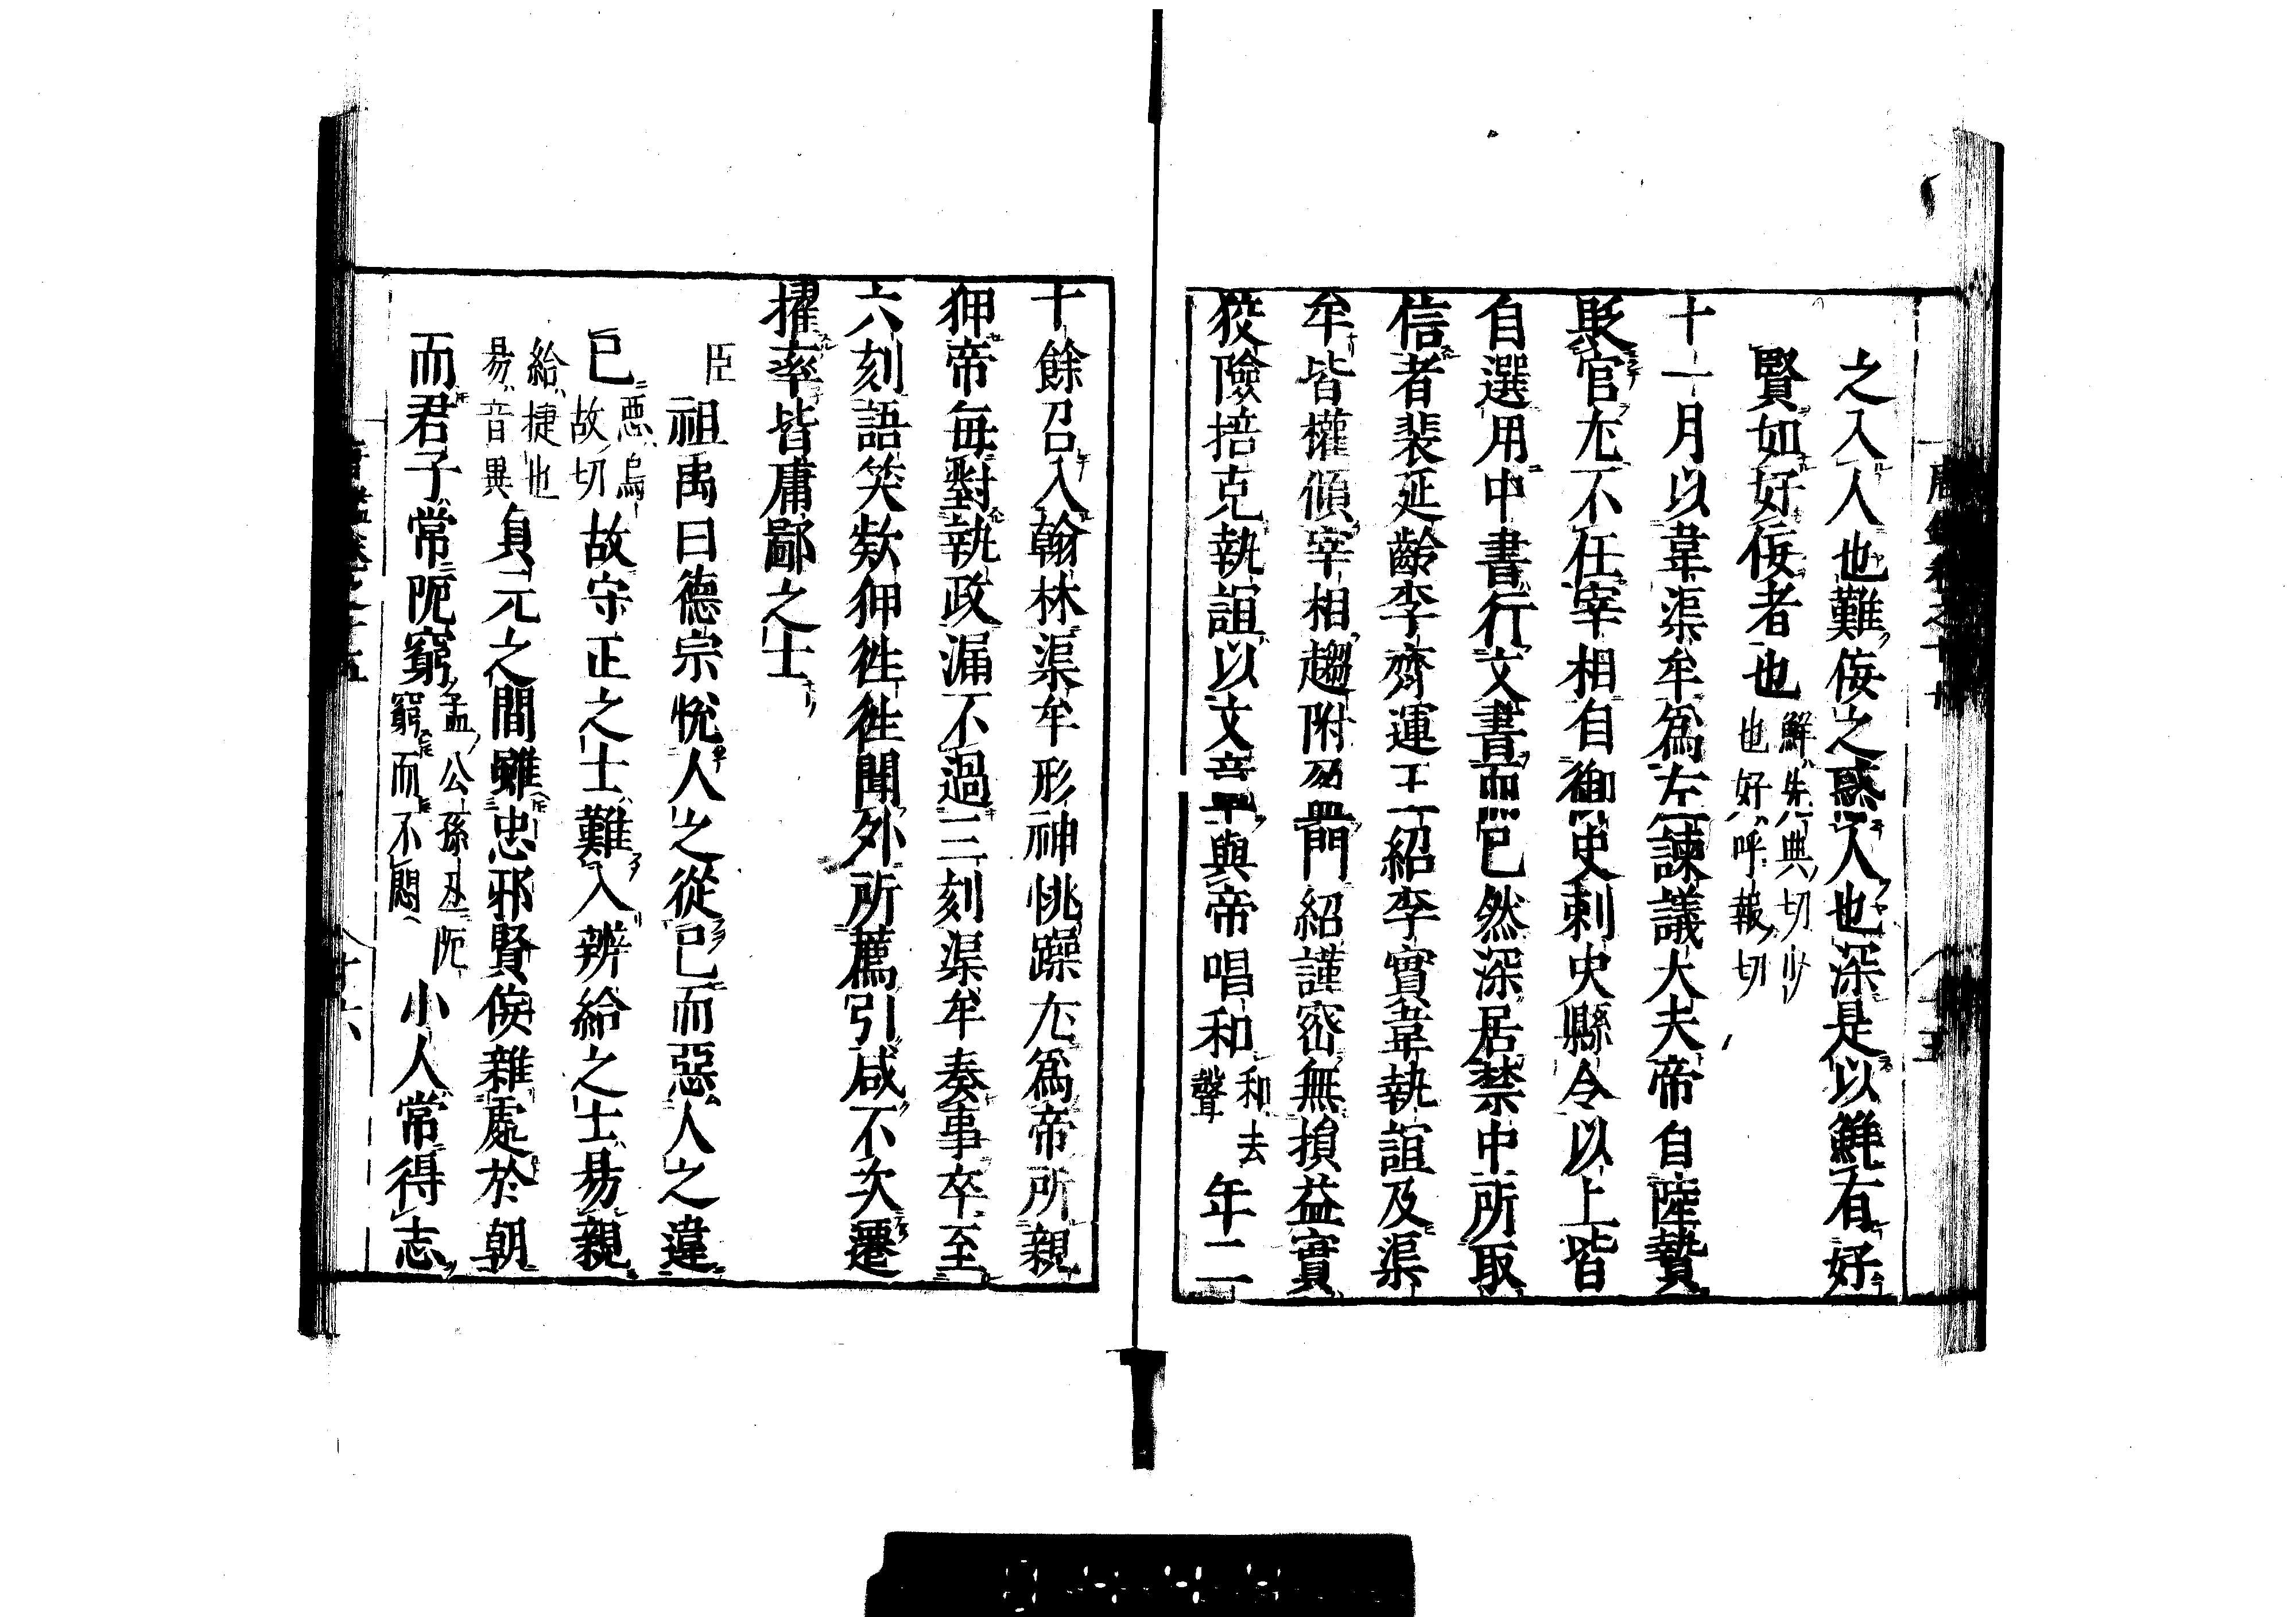 之入人也難佞之惑人也深是以鮮有好
賢如好佞者也鮮先典切少也好呼報切
十一月以韋渠牟爲左諫議大夫帝自陸贄
貶官尤不任宰相自御史刺史縣令以上皆
自選用中書行文書而已然深居禁中所取
信者裴延齡李齊運王紹李實韋執誼及渠
牟皆權傾宰相趨附盈門紹謹密無損益實
狡險掊克執誼以文章與帝唱和和去聲年二
十餘召入翰林渠牟形神恌躁尤爲帝所親
狎帝每對執政漏不過三刻渠牟奏事卒至
六刻語笑欵狎徃徃聞外所薦引咸不次遷
擢率皆庸鄙之士
臣祖禹曰德宗悅人之從己而惡人之違
己惡烏故切故守正之士難入辨給之士易親
給捷也易音異貞元之間雖忠邪賢佞雜處於朝
而君子常阨窮孟公孫丑阨窮而不憫小人常得志